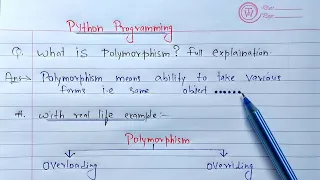 Python Programming
Q. What is Polymorphism? full explaination.
Ans→ Polymorphism means ability to take various
forms i.e same object ......
#. With real life example:-
Polymorphism
Overloading Overriding